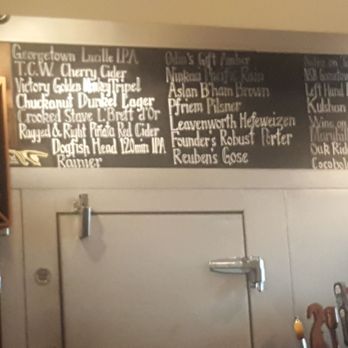 Georgetown Lucille IPA
T.C.W. Cherry Cider
Victory Golden Monkey Tripel
Chuckanut Dunkel Lager
Crooked Stave L'Brett d'Or
Ragged & Right Piñata Red Cider
Dogfish Head 120min IPA
Rainier
Odin's Gift Amber
Ninkasi Pacific Rain
Aslan B'ham Brown
Pfriem Pilsner
Leavenworth Hefeweizen
Founder's Robust Porter
Reuben's Gose
on
Left Hand
Kulshan
Wine on
Oak Rid